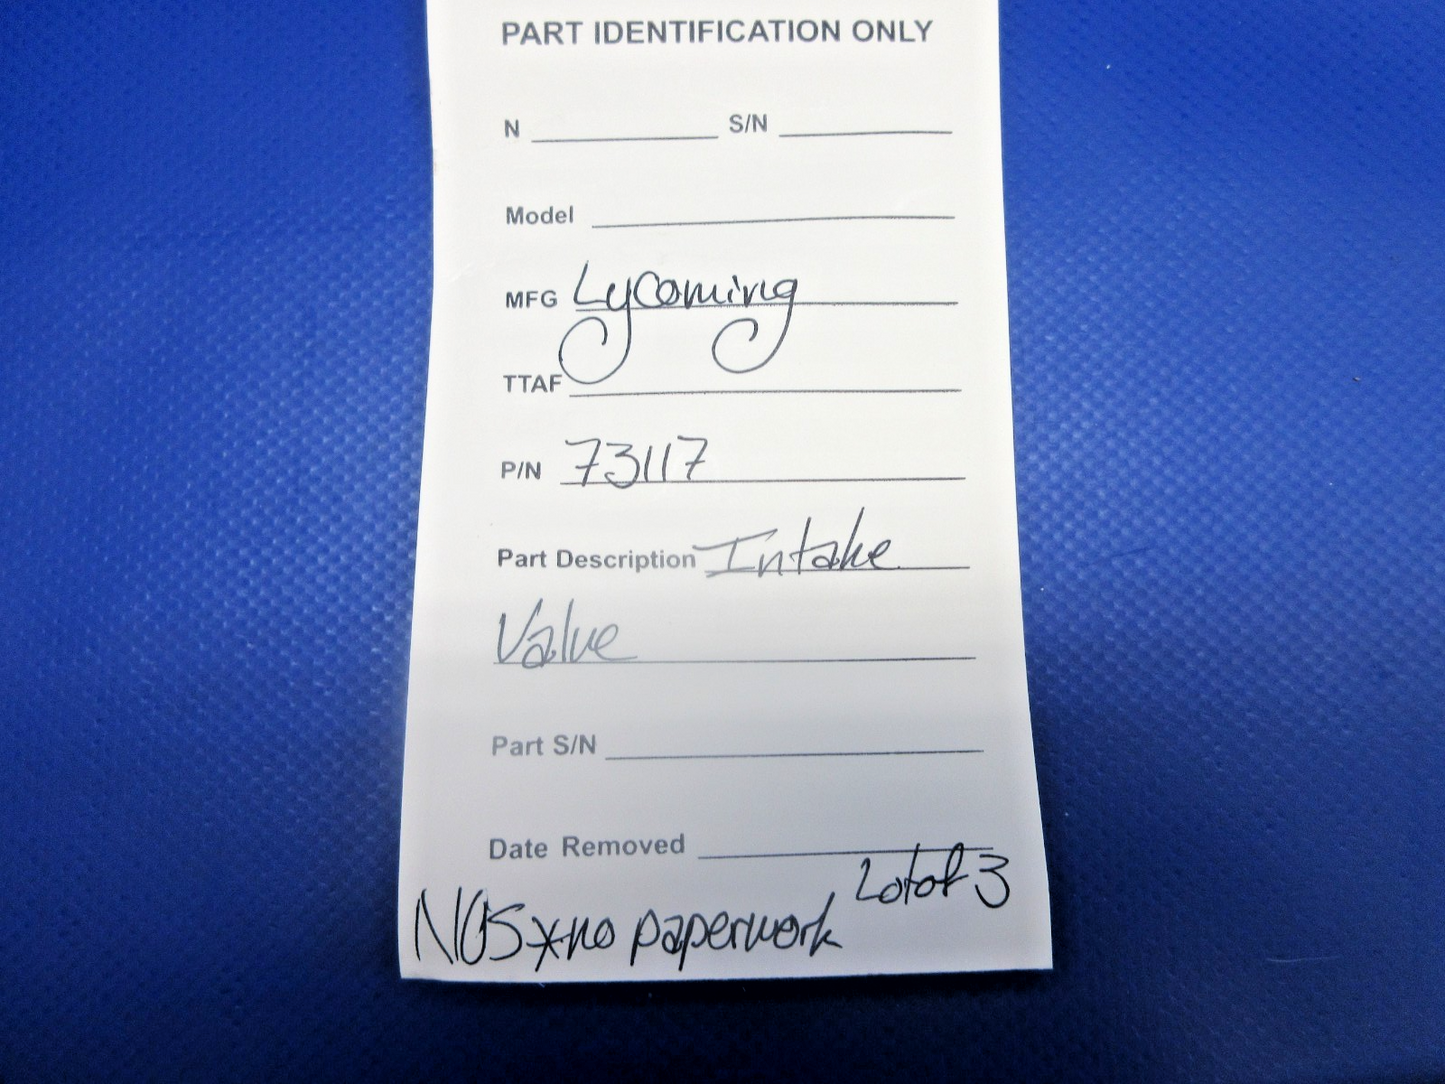 PART IDENTIFICATION ONLY
N S/N
Model
MFG Lycoming
TTAF
P/N 73117
Part Description Intake
Valve
Part S/N
Date Removed
Lot of 3
NOS * no paperwork